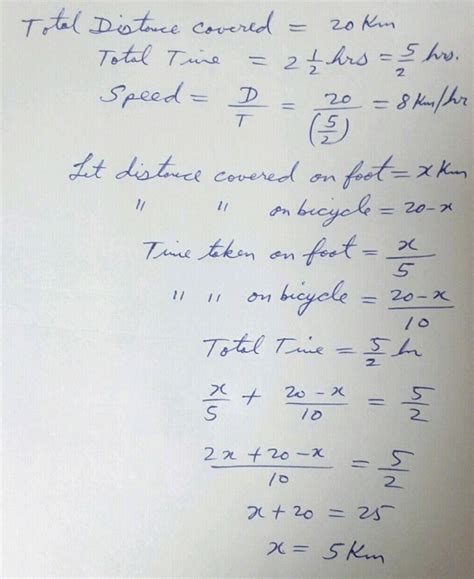 Total Distance covered = 20 Km
Total Time = 2 1/2 hrs = 5/2 hrs.
Speed = D/T = 20/(5/2) = 8 Km/hr
Let distance covered on foot = x Km
" " on bicycle = 20-x
Time taken on foot = x/5
" " on bicycle = 20-x/10
Total Time = 5/2 hr
x/5 + 20-x/10 = 5/2
2x+20-x/10 = 5/2
x+20 = 25
x = 5 Km